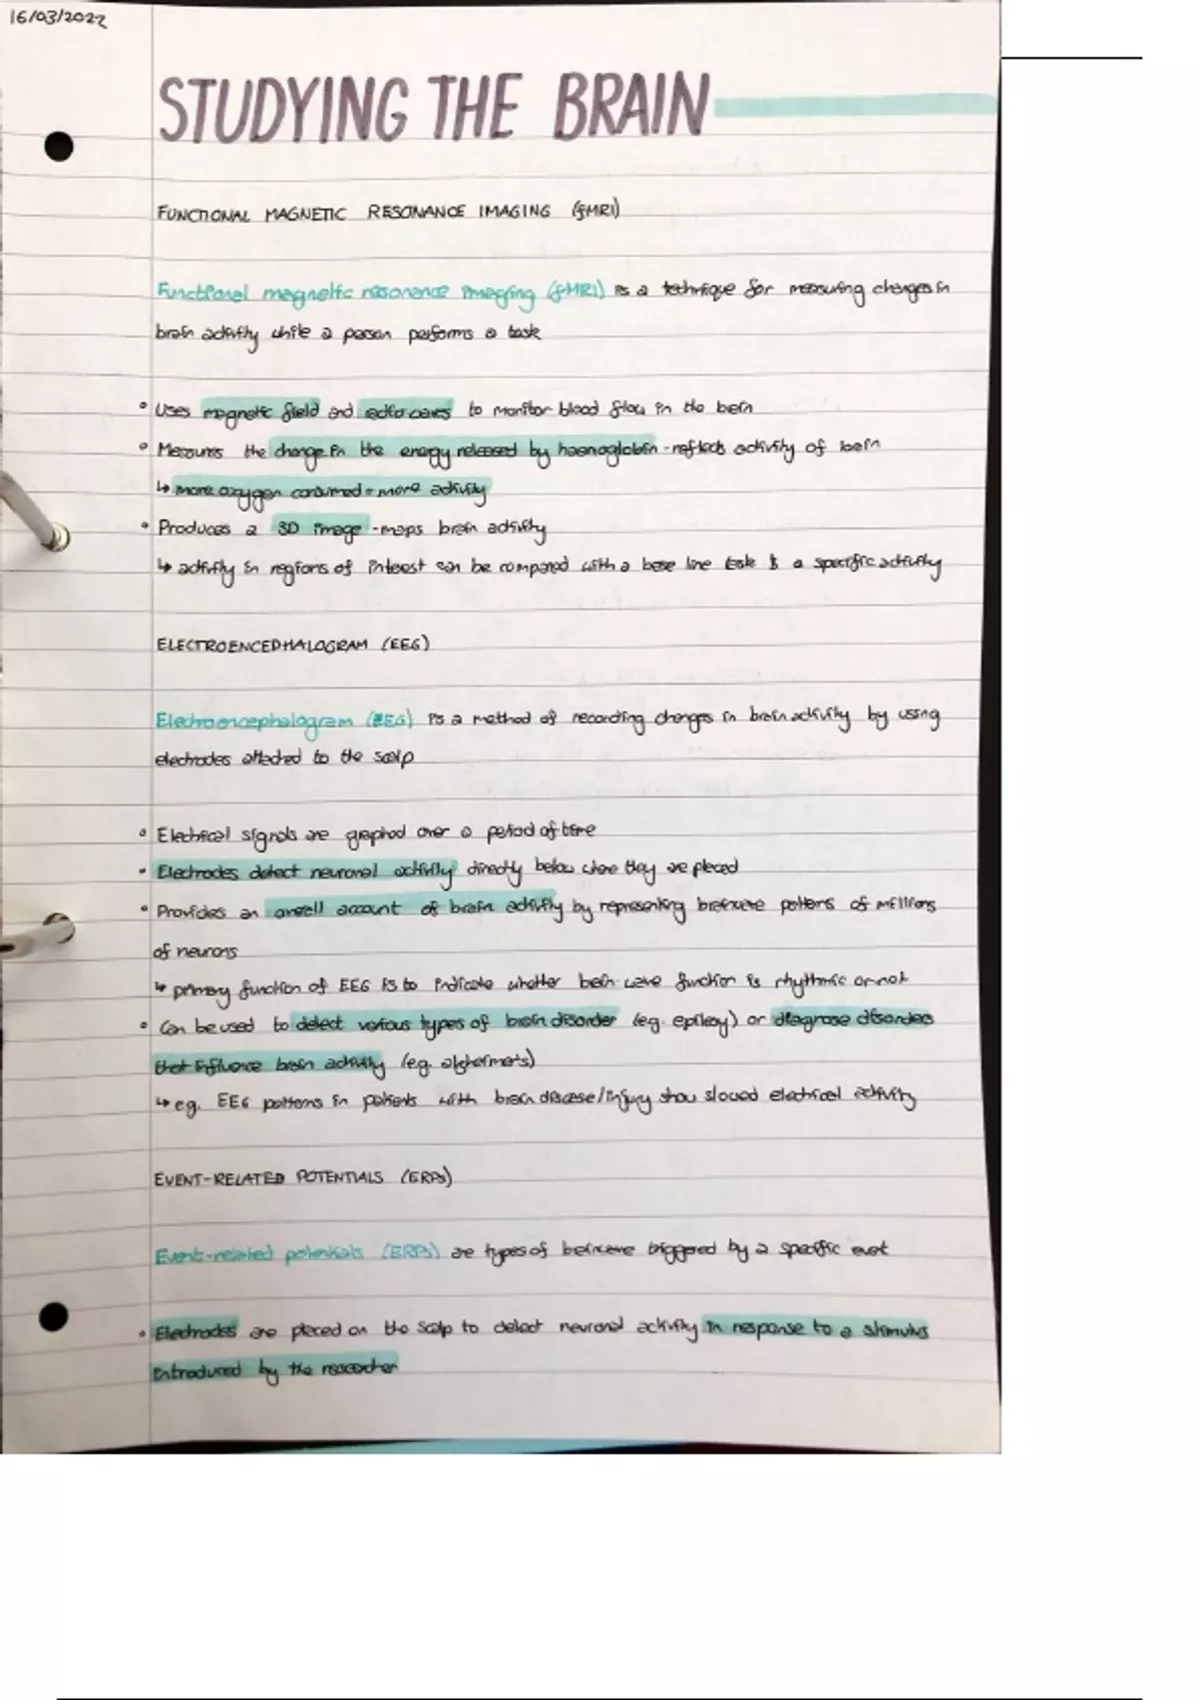 16/03/2022
STUDYING THE BRAIN
FUNCTIONAL MAGNETIC RESONANCE IMAGING (fMRI)
Functional magnetic resonance imaging (fMRI) is a technique for measuring changes in
brain activity while a person performs a task
• Uses magnetic field and radio waves to monitor blood flow in the brain
• Measures the change in the energy released by haemoglobin - reflects activity of brain
↳ more oxygen consumed = more activity
• Produces a 3D image - maps brain activity
↳ activity in regions of interest can be compared with a base line task & a specific activity
ELECTROENCEPHALOGRAM (EEG)
Electroencephalogram (EEG) is a method of recording changes in brain activity by using
electrodes attached to the scalp
• Electrical signals are graphed over a period of time
• Electrodes detect neuronal activity directly below where they are placed
• Provides an overall account of brain activity by representing brainwave patterns of millions
of neurons
↳ primary function of EEG is to indicate whether brain wave function is rhythmic or not
• Can be used to detect various types of brain disorder (eg. epilepsy) or diagnose disorders
that influence brain activity (e.g. alzheimer's)
↳ eg. EEG patterns in patients with brain disease/injury show slowed electrical activity
EVENT-RELATED POTENTIALS (ERPs)
Event-related potentials (ERPs) are types of brainwave triggered by a specific event
• Electrodes are placed on the scalp to detect neuronal activity in response to a stimulus
introduced by the researcher